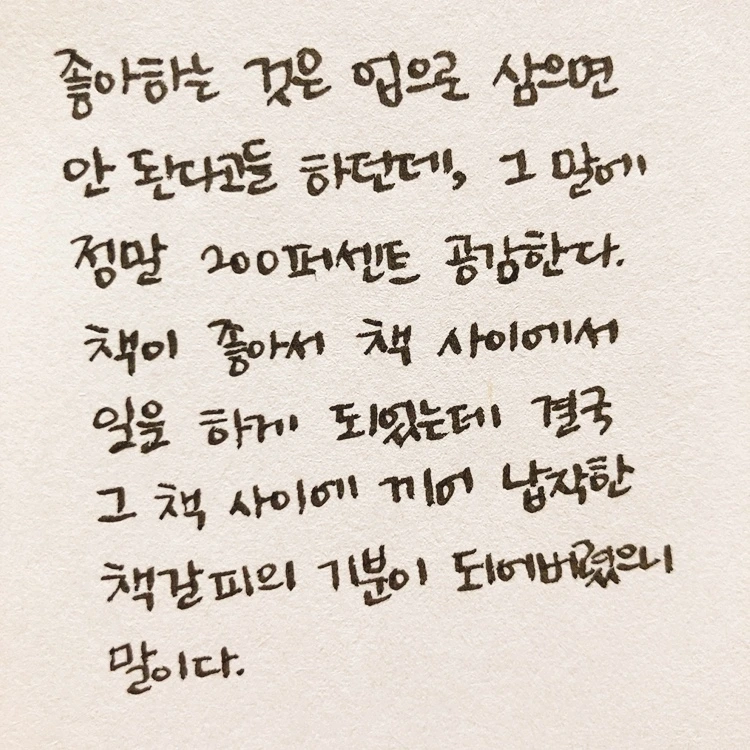 좋아하는 것은 업으로 삼으면
안 된다고들 하던데, 그 말에
정말 200퍼센트 공감한다.
책이 좋아서 책 사이에서
일을 하게 되었는데 결국
그 책 사이에 끼어 납작한
책갈피의 기분이 되어버렸으니
말이다.